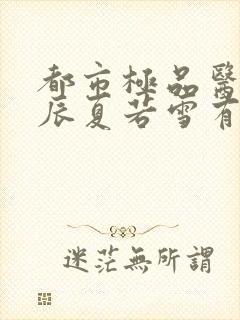 都市極品醫
辰夏若雪有
迷茫無所謂